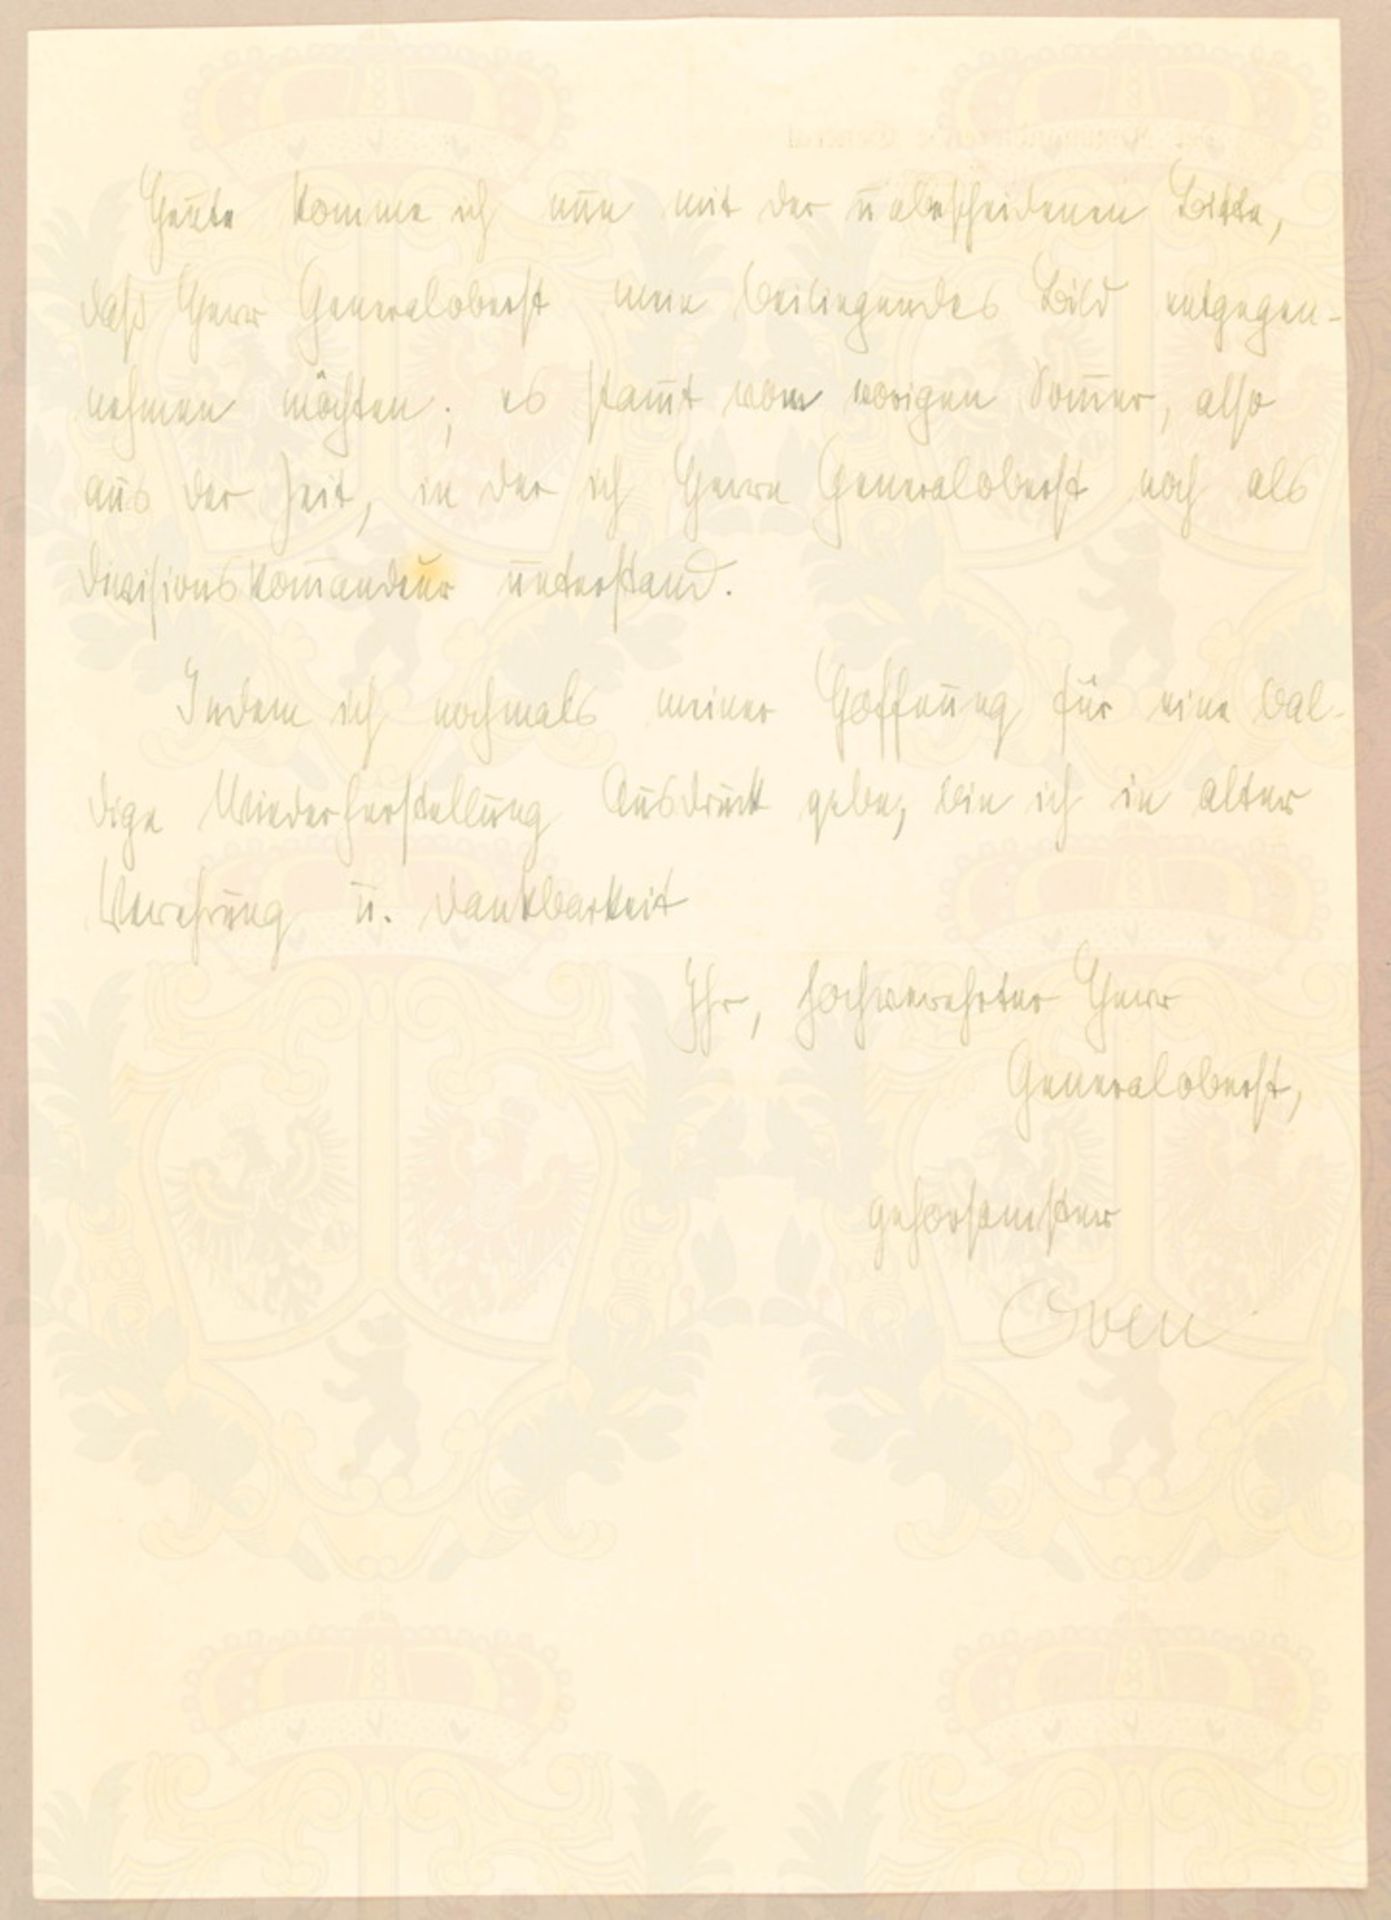 Heute komme ich nun mit der unbescheidenen Bitte,
daß Herr Generaloberst mein beiliegendes Bild entgegen-
nehmen möchten; es stam̅t vom vorigen Som̅er, also
aus der Zeit, in der ich Herrn Generaloberst noch als
Divisionskom̅andeur unterstand.
Indem ich nochmals meiner Hoffnung für eine bal-
dige Wiederherstellung Ausdruck gebe, bin ich in alter
Verehrung u. Dankbarkeit
Ihr, hochverehrter Herr
Generaloberst,
gehorsamster
Oven